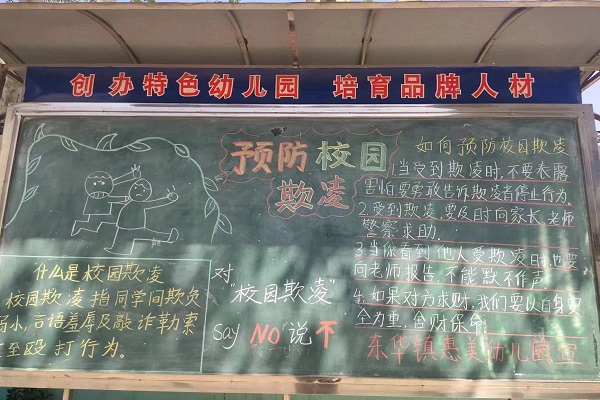 创办特色幼儿园 培育品牌人材
预防校园
欺凌
什么是校园欺凌
校园欺凌指同学间欺负
弱小,言语羞辱及敲诈勒索
至殴打行为。
对
"校园欺凌"
say NO"说不
如何预防校园欺凌
1.当受到欺凌时,不要表露
害怕要勇敢告诉欺凌者停止行为。
2.受到欺凌,要及时向家长,老师
警察求助。
3.当你看到他人受欺凌时也要
向老师报告,不能默不作声
4.如果对方求财,我们要以自身安
全为重,舍财保命。
东华镇惠美幼儿园宣